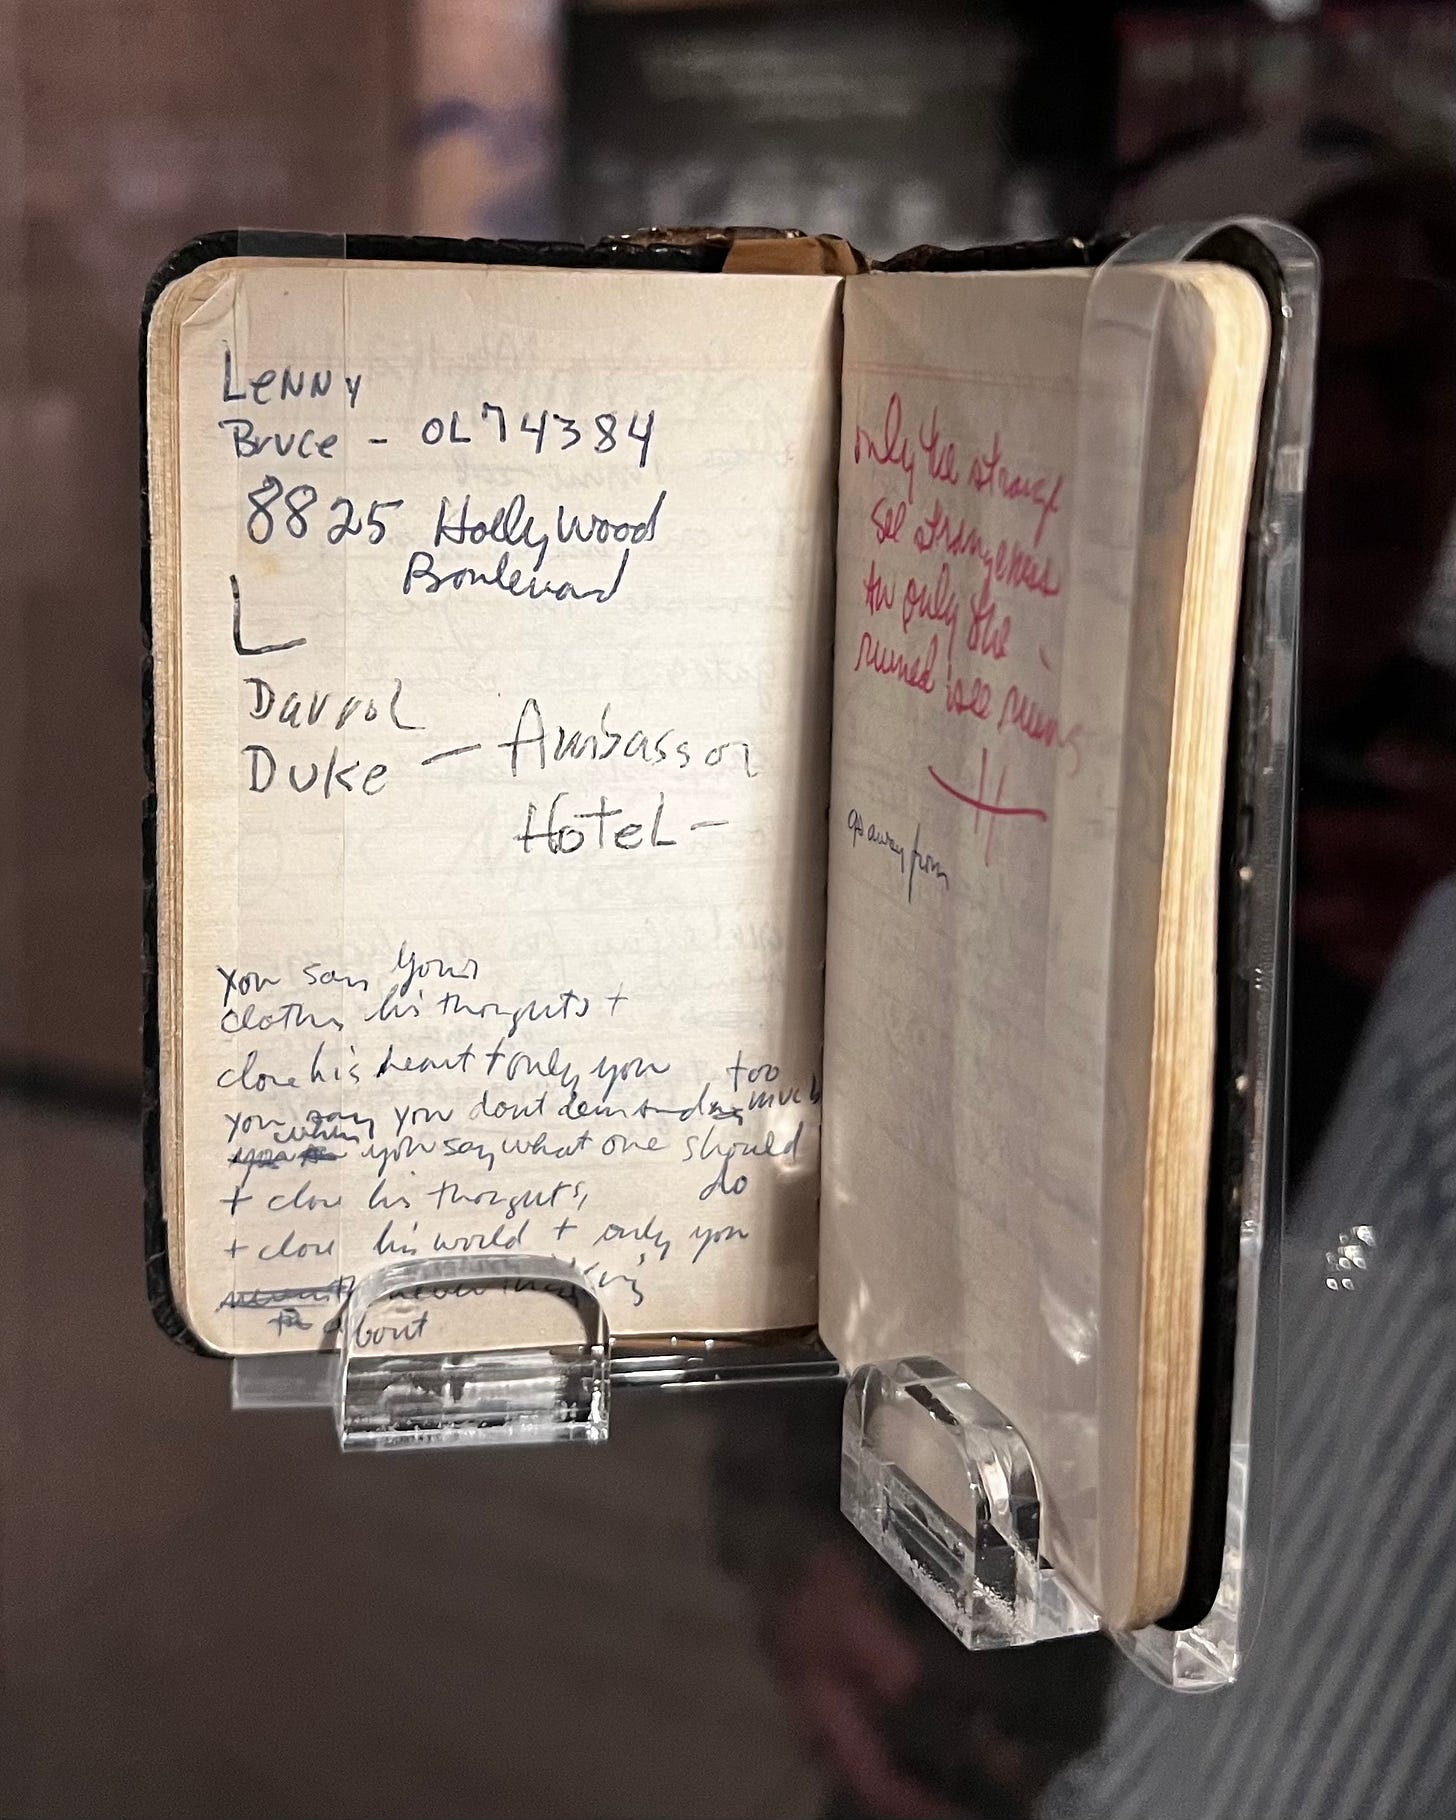 Lenny
Bruce - OL74384
8825 Hollywood
Boulevard
L
Darrol
Duke - Ambassor
Hotel -
you say your
clothes his thoughts +
close his heart + only you
you say you dont demand too much
when you say what one should
do
+ close his thoughts,
+ close his world + only you
never
about
only the strange
see strangeness
only the
ruined see ruins
go away from